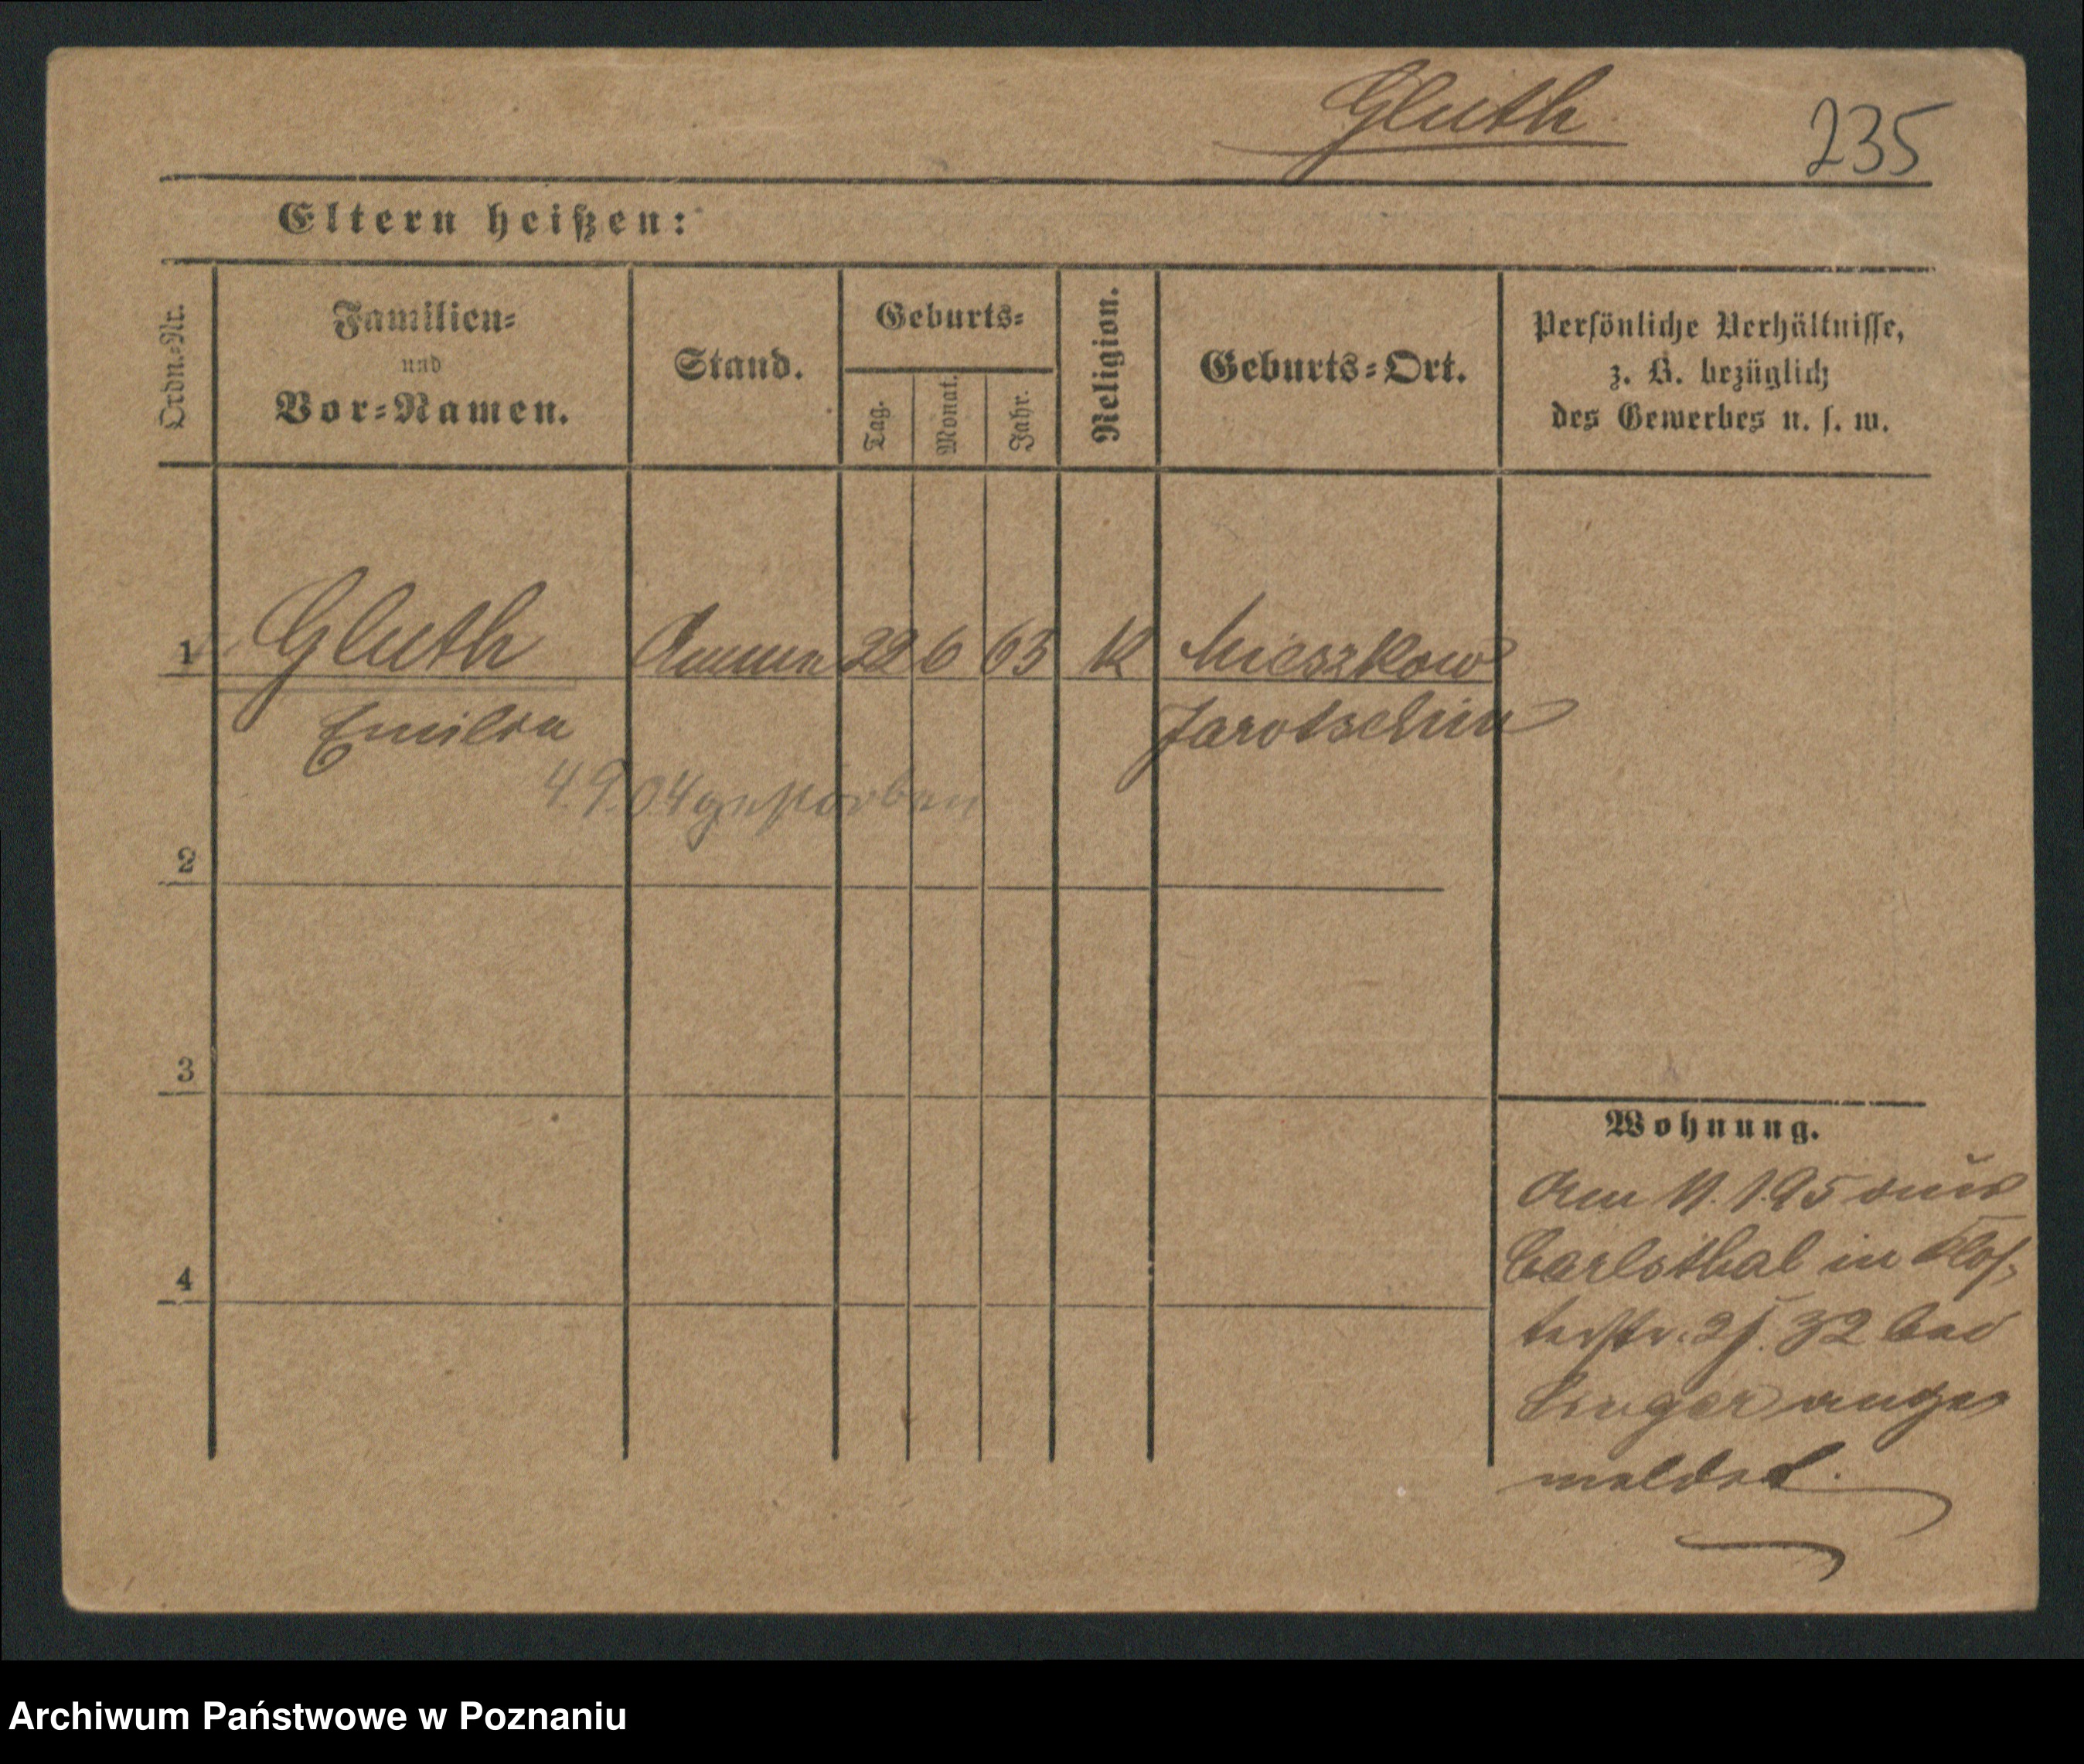 Gluth
235
Eltern heißen:
Ordn.=Nr.
Familien=
und
Vor=Namen.
Stand.
Geburts=
Tag.
Monat.
Jahr.
Religion.
Geburts=Ort.
Persönliche Verhältnisse,
z. B. bezüglich
des Gewerbes u. s. w.
1 Gluth Amme 22 6 63 K Mieszkow
Emilia Jarotschin
4.9.04 gestorben
2
3
4
Wohnung.
Am 11.1.95 aus
Carlsthal in Klos=
terstr. 21. 32 bei
ange
meldet.
Archiwum Państwowe w Poznaniu